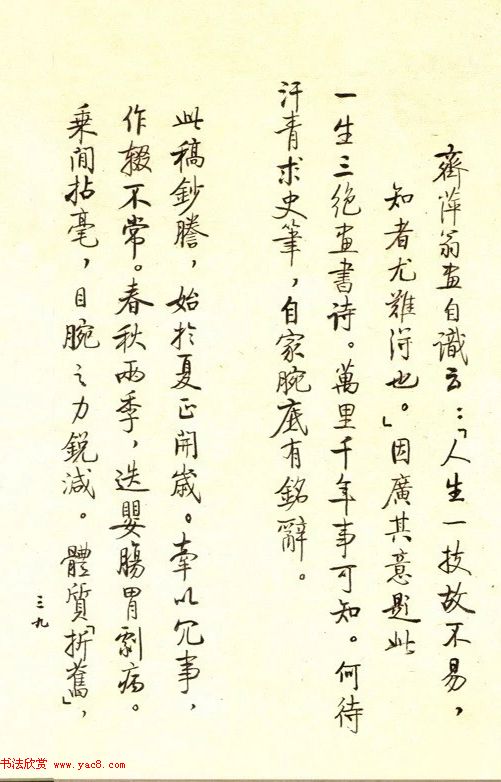 齊萍翁畫自識云：「人生一技故不易，
知者尤難得也。」因廣其意題此
一生三絶畫書诗。萬里千年事可知。何待
汗青求史筆，自家腕底有銘辭。
此稿鈔謄，始於夏正開歲。牽以冗事，
作輟不常。春秋兩季，迭嬰腸胃劇病。
乘间拈毫，目腕之力鋭減。體質「折舊」，
三九
书法欣赏 www.yac8.com